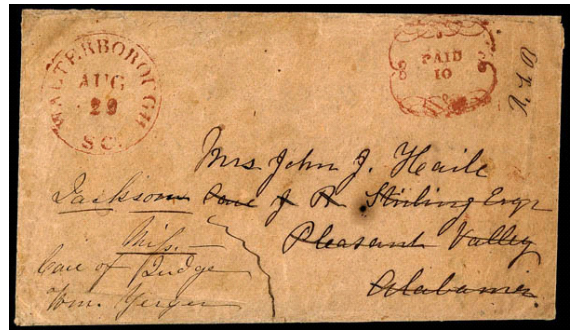 WALTERBOROUGH
AUG
29
S C.
PAID
10
Mrs John J. Haile
Jackson Care of R Stirling Esqr
Pleasant Valley
Alabama
Miss.
Care of Judge
Wm. Yerger